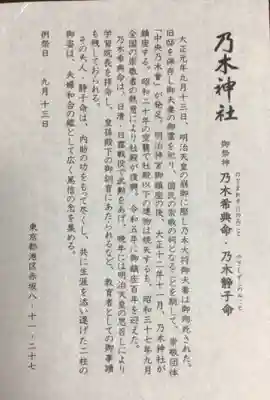 乃木神社
御祭神 乃木希典命・乃木靜子命
のぎまれすけのみこと
のぎしずこのみこと
大正元年九月十三日、明治天皇の崩御に際し乃木大将御夫妻は御殉死された。
旧邸を保存し御夫妻の御霊を祀り、国民の崇敬の祠となることを願して、崇敬団体
「中央乃木會」が発足。明治神宮御鎮座の後、大正十二年十一月、乃木神社が
鎮座する。昭和二十年の空襲で社殿以下の建物は焼失するも、昭和三十七年九月
全国の崇敬者の熱意により社殿が復興、令和五年に御鎮座百年を迎えた。
乃木希典命は、日清・日露戦役で武勲をあげ、晩年には明治天皇の思召しにより
学習院長を拝命し、皇孫殿下の御訓育にあたられるなど、教育者としての御事蹟
も残しておられる。
その夫人・静子命は、内助の功をもって尽くし、共に生涯を添い遂げた二柱の
御姿は、夫婦和合の鑑として広く篤信の念を集める。
例祭日 九月十三日
東京都港区赤坂八-十一-二十七